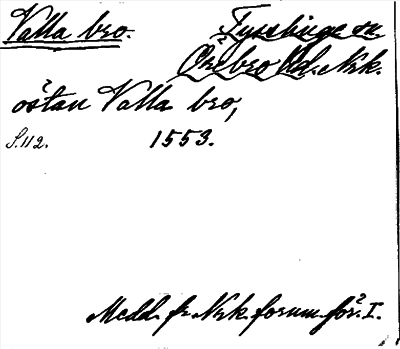 Valla bro. Tysslinge sn
Örebro hd. Nrk.
östan Valla bro,
S. 112. 1553.
Medd. fr. Nrk. fornm. för. I.